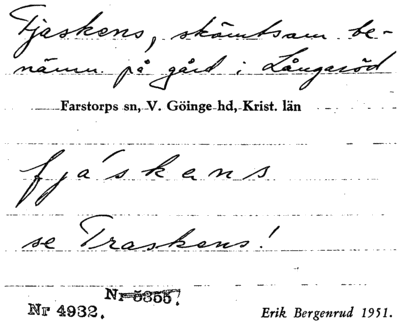 Fjaskens, skämtsam be-
nämn på gård i Långaröd
Farstorps sn, V. Göinge hd, Krist. län
fjáskens
se Traskens!
Nr 5355.
Nr 4932.
Erik Bergenrud 1951.